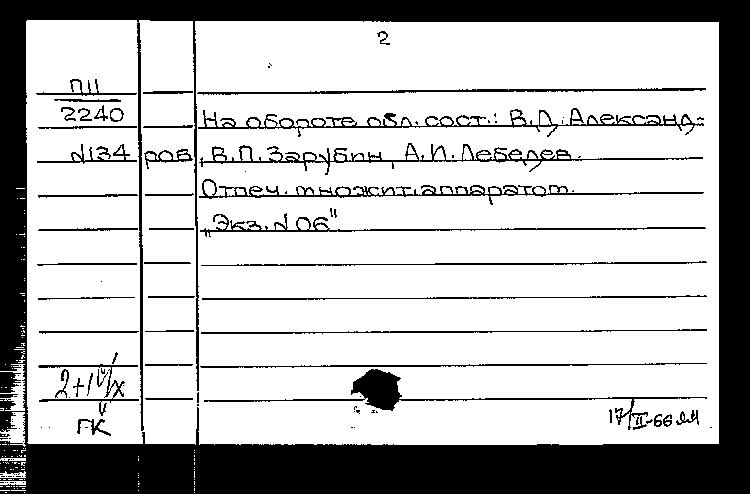 2
ПII
2240
На обороте обл. сост.: В.Д. Александ-
N134 ров, В.П. Зарубин, А.И. Лебедев.
Отпеч. множит. аппаратом.
„Экз. N 06"
2+1
ГК
17/II-66